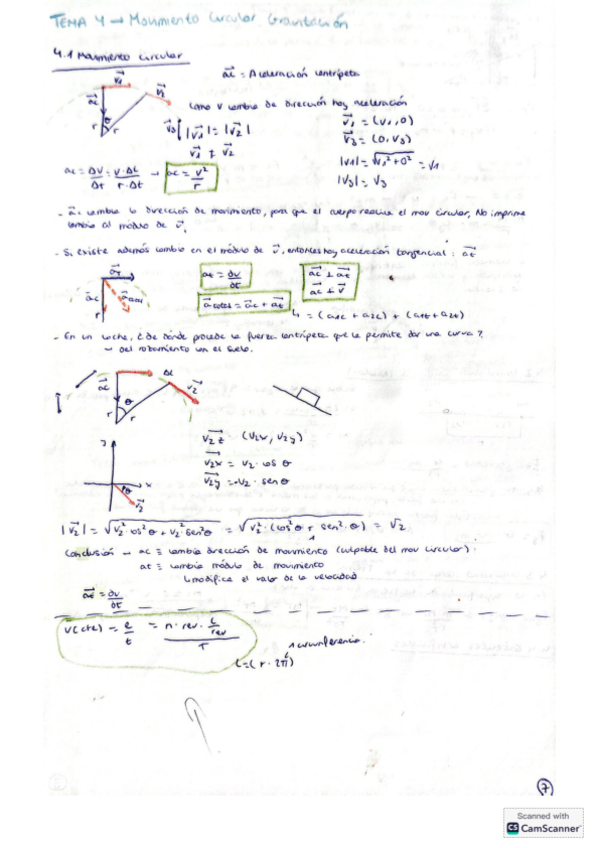 TEMA 4 → Movimiento Circular Gravitación
4.1 Movimiento circular
ac = Aceleración centrípeta
Como V cambia de dirección hay aceleración
|v1| = |v2|
v1 ≠ v2
v1 = (v1, 0)
v3 = (0, v3)
|v1| = √v1² + 0² = v1
|v3| = v3
ac = Δv/Δt = v·Δt/r·Δt → ac = v²/r
- ac cambia la dirección de movimiento, para que el cuerpo realice el mov circular, No imprime
cambio al módulo de v.
- Si existe además cambio en el módulo de v, entonces hay aceleración tangencial: at
at = ∂v/∂t
ac ⊥ at
ac ⊥ v
a total = ac + at
= (a1c + a2c) + (a1t + a2t)
- En un coche, ¿de dónde procede la fuerza centrípeta que le permite dar una curva?
→ Del rozamiento con el suelo.
ac θ r r v2
v2 = (v2x, v2y)
v2x = v2 · cos θ
v2y = -v2 · sen θ
y x θ v2
|v2| = √v2² cos²θ + v2² sen²θ = √v2² · (cos²θ + sen²θ) = v2
1
Conclusión → ac ≡ cambia dirección de movimiento (culpable del mov circular).
at ≡ cambia módulo de movimiento
modifica el valor de la velocidad
at = ∂v/∂t
v(cte) = e/t = n·rev · L/rev / T
1 circunferencia.
L = (r · 2π)
7
Scanned with
CS CamScanner